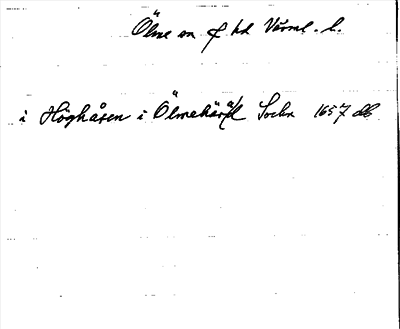 Ölme sn o hd Värml. l.
i Höghåsen i Ölmehärad Sochn 1657 db